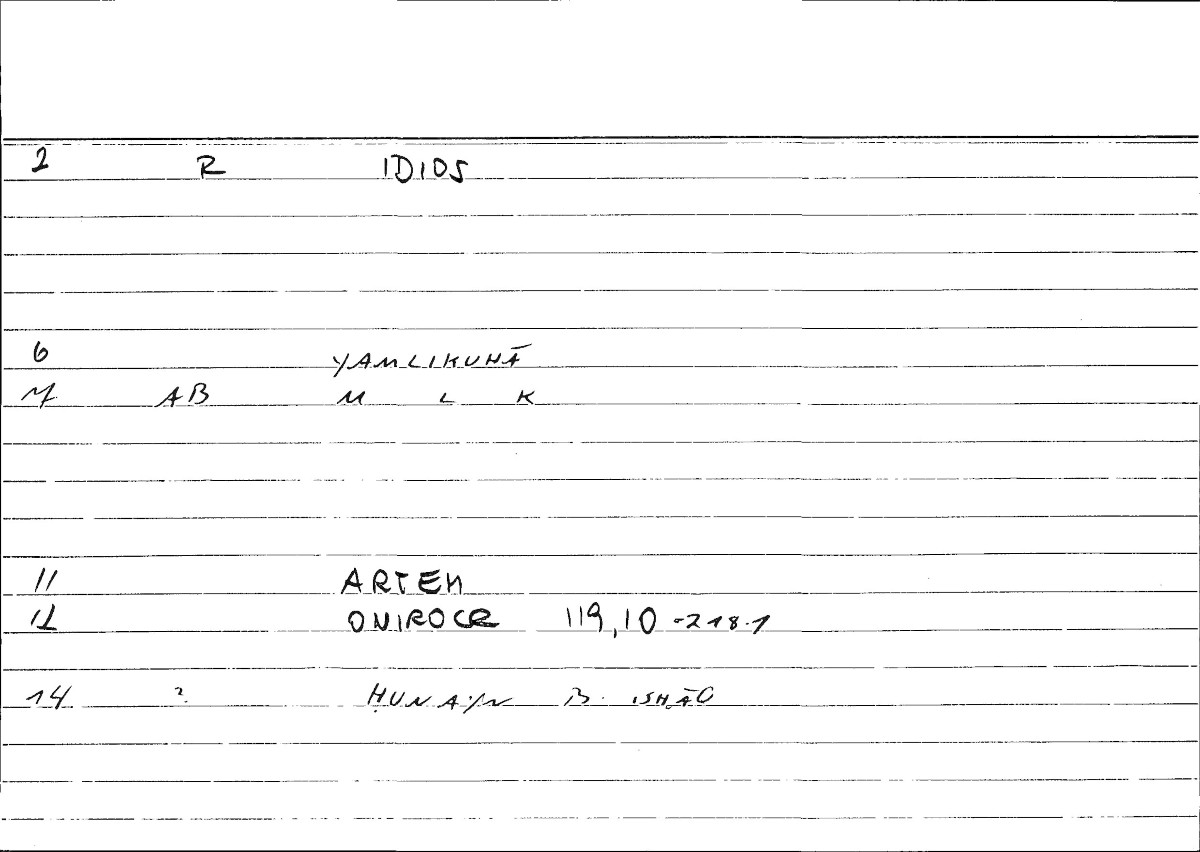 2 R IDIOS
6 YAMLIKUHĀ
7 AB M L K
11 ARTEM
12 ONIROCR 119,10 -218.1
14 ? ḤUNAYN B. ISḤĀQ